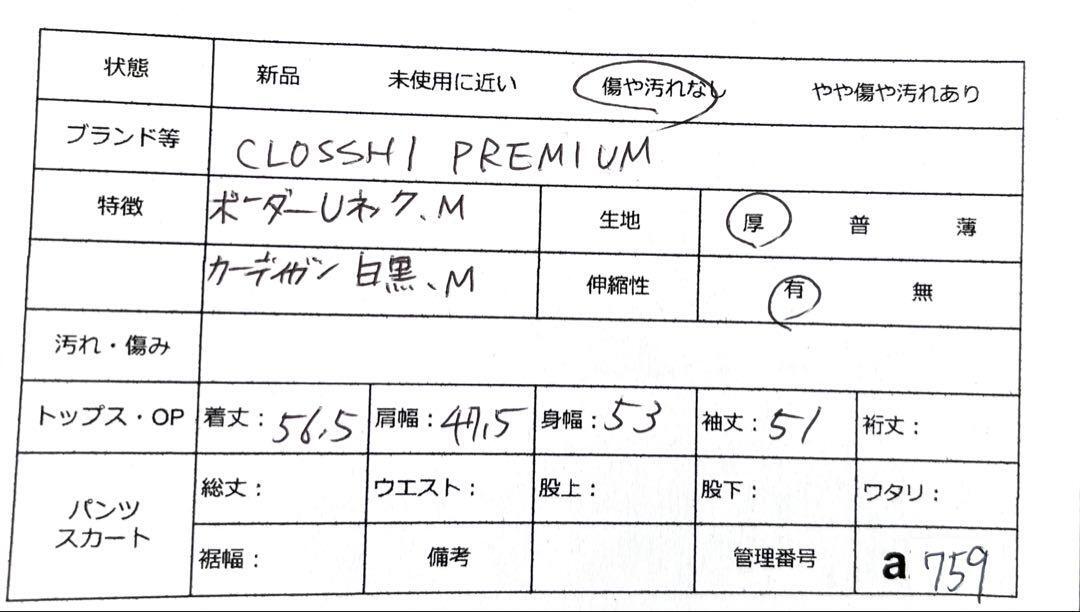 状態 新品 未使用に近い 傷や汚れなし やや傷や汚れあり
ブランド等 CLOSSHI PREMIUM
特徴 ボーダーUネック、M 生地 厚 普 薄
カーディガン 白黒、M 伸縮性 有 無
汚れ・傷み
トップス・OP 着丈：56,5 肩幅：47,5 身幅：53 袖丈：51 裄丈：
パンツ
スカート
総丈： ウエスト： 股上： 股下： ワタリ：
裾幅： 備考 管理番号 a 759